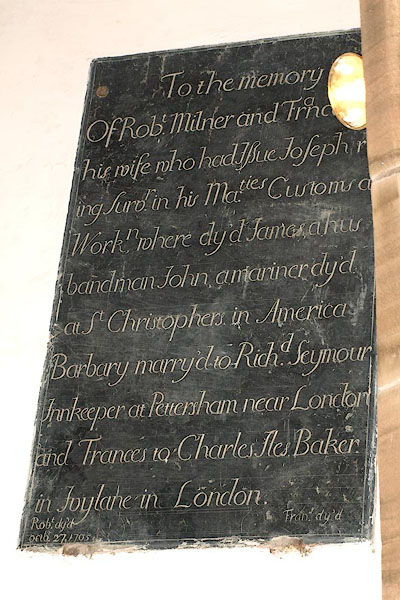 To the memory
Of Robt. Milner and Fra
his wife who had Issue Joseph
ing Survr. in his Ma.ties Customs a
Work.n where dy'd James, a hus
bandman John a mariner dy'd
at St. Christophers in America
Barbary marry'd to Rich.d Seymour
Innkeeper at Pettersham near London
and Frances to Charles Iles Baker
in Ivylane in London.
Robt. dy'd
Octb. 27, 1705
Fran.s dy'd